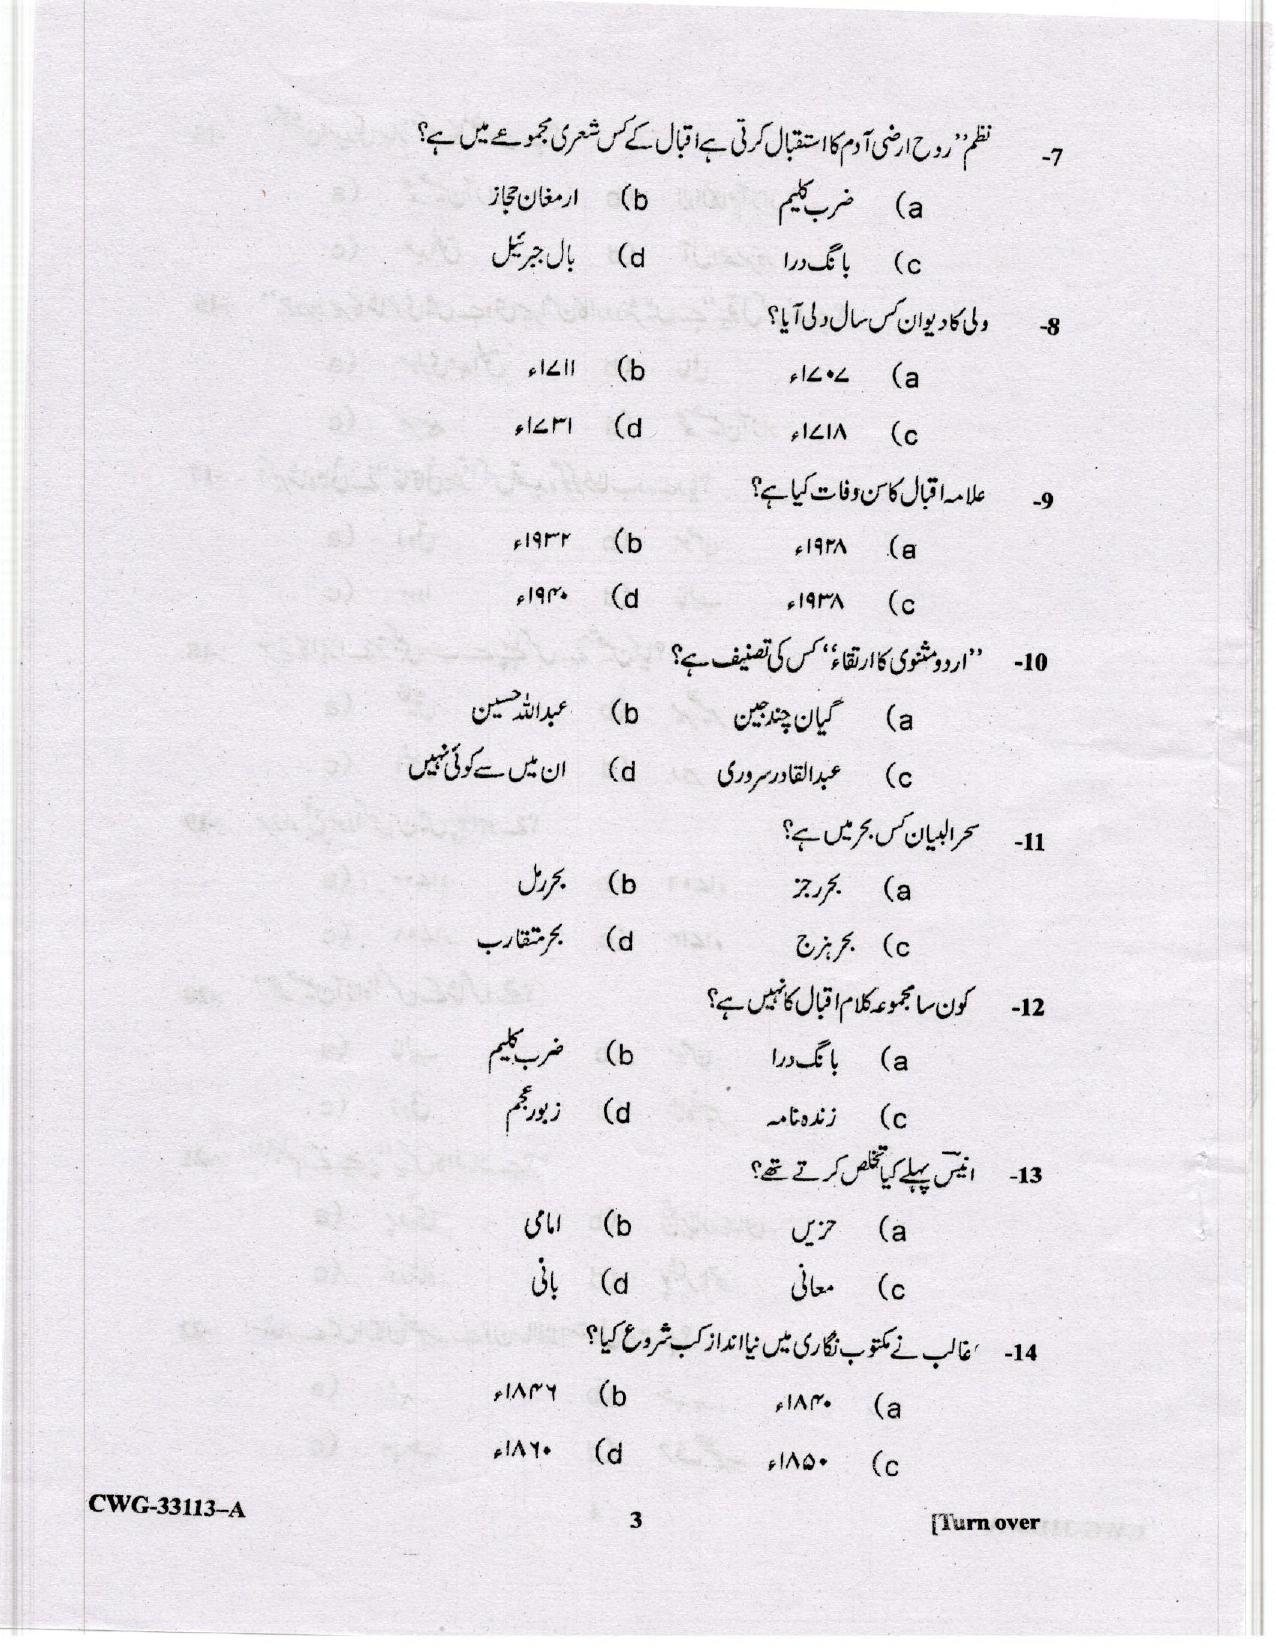 7- نظم ”روح ارضی آدم کا استقبال کرتی ہے اقبال کے کس شعری مجموعے میں ہے؟
a) ضرب کلیم b) ارمغان حجاز
c) بانگ درا d) بال جبرئیل
8- ولی کا دیوان کس سال دلی آیا؟
a) ۱۷۰۷ء b) ۱۷۱۱ء
c) ۱۷۱۸ء d) ۱۷۳۱ء
9- علامہ اقبال کا سن وفات کیا ہے؟
a) ۱۹۲۸ء b) ۱۹۳۲ء
c) ۱۹۳۸ء d) ۱۹۴۰ء
10- ”اردو مثنوی کا ارتقاء“ کس کی تصنیف ہے؟
a) گیان چند جین b) عبداللہ حسین
c) عبدالقادر سروری d) ان میں سے کوئی نہیں
11- سحر البیان کس بحر میں ہے؟
a) بحر رجز b) بحر رمل
c) بحر ہزج d) بحر متقارب
12- کون سا مجموعہ کلام اقبال کا نہیں ہے؟
a) بانگ درا b) ضرب کلیم
c) زندہ نامہ d) زبور عجم
13- انیسؔ پہلے کیا تخلص کرتے تھے؟
a) حزیں b) امامی
c) معانی d) بانی
14- غالب نے مکتوب نگاری میں نیا انداز کب شروع کیا؟
a) ۱۸۴۰ء b) ۱۸۴۶ء
c) ۱۸۵۰ء d) ۱۸۶۰ء
CWG-33113–A 3 [Turn over